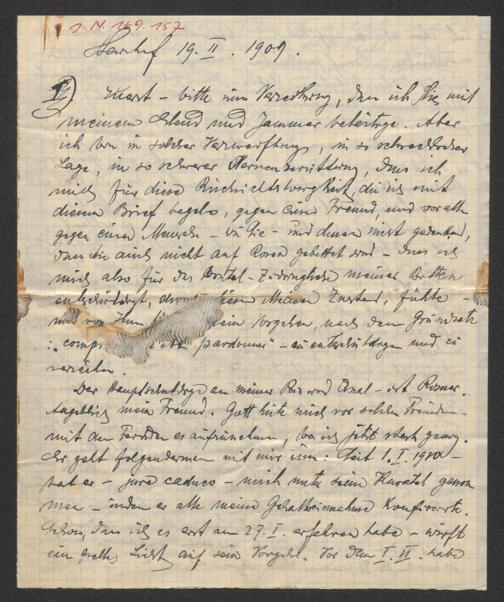 I. N. 169.157
19. II. 1909.
1) Zuerst – bitte um Verzeihung, dass ich Sie mit
meinem Elend und Jammer belästige. Aber
ich bin in solcher Verzweiflung, in so schrecklicher
Lage, in so schwerer Nervenzerrüttung, dass ich
mich für diese Rücksichtslosigkeit, die ich mit
diesem Brief begehe, gegen einen Freund, und vor allem
gegen einen Menschen – wie Sie – und denen nicht gedenkend,
dass Sie auch nicht auf Rosen gebettet sind – dass ich
mich also für das Brutal-Zudringliche meiner Bitten
entschuldigt, durch meinen Zustand, fühle –
und von Ihnen mein Vorgehen, nach dem Grundsatz
: "pardonner" – zu entschuldigen und zu
verzeihen.
Der Hauptschuldige an meiner Pein und Qual – ist
angeblich mein Freund. Gott hüte mich vor solchen Freunden –
mit den Feinden es aufzunehmen, bin ich jetzt stark genug.
Er geht folgendermassen mit mir um: Seit 1. I.
hat er – jure caduco – mich unter seine Kuratel genom
men – indem er alle meine Gehaltseinnahme konfiszierte.
Schon, dass ich es erst am 27. I. erfahren habe – wirft
ein grelles Licht auf sein Vorgehen. Vor dem I. II. habe